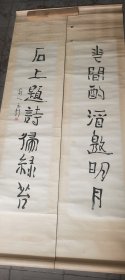 花間酌酒邀明月
石上題詩掃綠苔